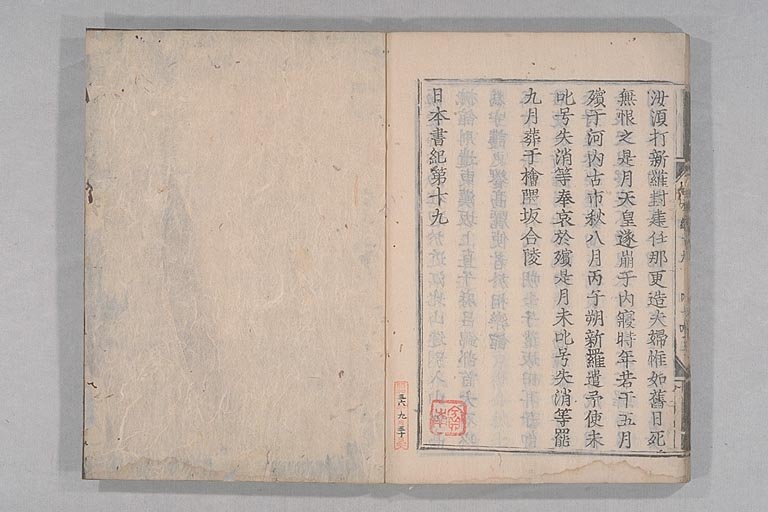 汝須打新羅封建任那更造夫婦惟如舊日死
無恨之是月天皇遂崩于内寢時年若干五月
殯于河内古市秋八月丙子朔新羅遣弔使未
叱号失消等奉哀於殯是月未叱号失消等罷
九月葬于檜隈坂合陵
日本書紀第十九